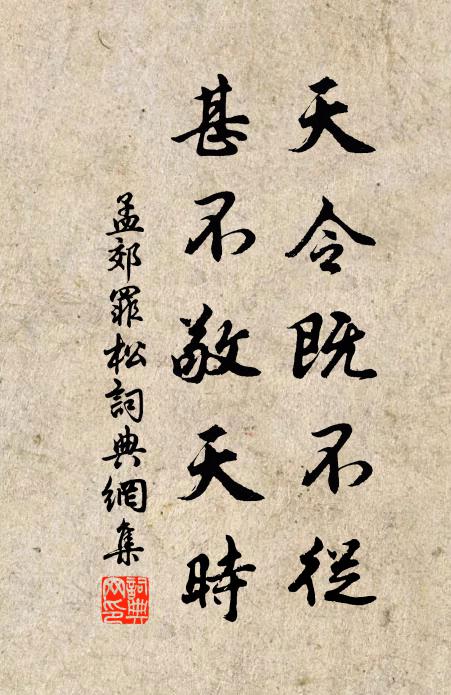 天令既不從
甚不敬天時
孟郊罪松詞典網集
詞典
网印